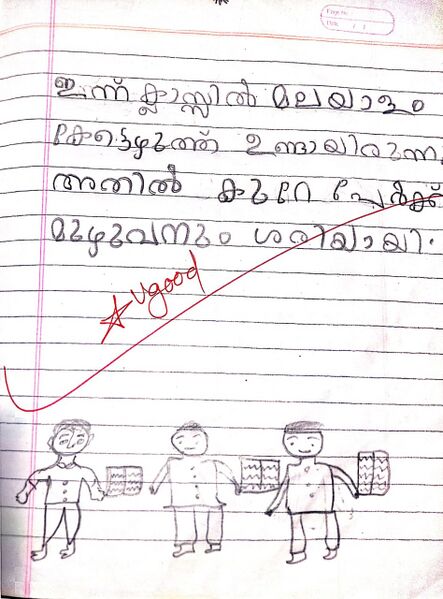 Page No.
Date
ഇന്ന് ക്ലാസ്സിൽ മലയാളം
കേട്ടെഴുത്ത് ഉണ്ടായിരുന്നു.
അതിൽ കുറേ പേർക്ക്
മുഴുവനും ശരിയായി.
vgood